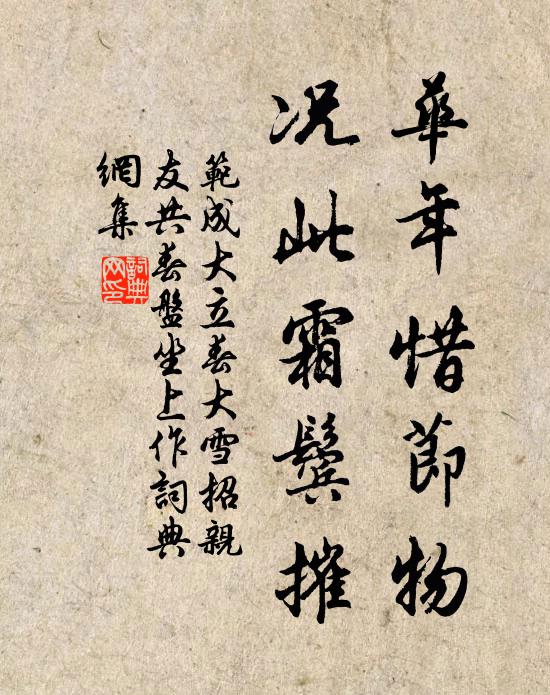 華年惜節物
况此霜鬢摧
範成大立春大雪招親
友共春盤坐上作詞典
網集
詞典網印